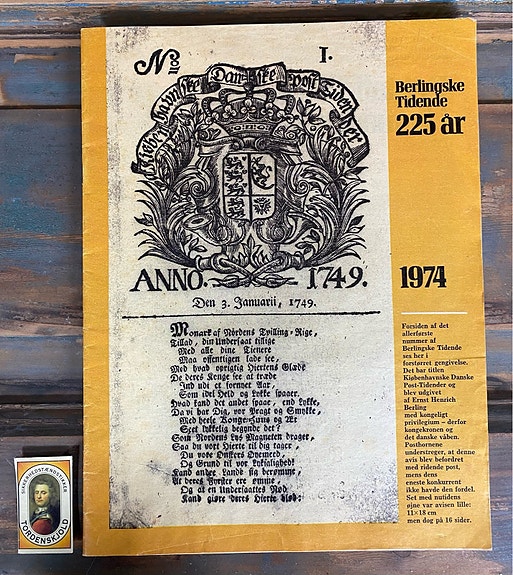 No
I.
Kiøbenhavnske Danske Post-Tidender
ANNO. 1749.
Den 3. Januarii, 1749.
Monark af Nordens Tvilling-Rige,
Tillad, din Undersaat tillige
Med alle dine Tienere
Maa offentligen lade see,
Med hvad oprigtig Hiertens Glæde
De deres Konge see at træde
Ind udi et fornyet Aar,
Som idel Held og Lykke spaaer.
Hvad kand det andet spaae, end Lykke,
Da vi har Dig, vor Pragt og Smykke,
Med heele Konge-Huus og Æt
Seet lykkelig begynde det?
Som Nordens Lys Magneten drager,
Saa du vort Hierte til dig tager,
Du vore Ønskers Øyemeed,
Og Grund til vor Lyksalighed!
Kand andre Lande sig berømme,
At deres Fyrster ere ømme,
Og at en Undersaatters Nød
Kand giøre deres Hierte blød:
Berlingske
Tidende
225 år
1974
Forsiden af det
allerførste
nummer af
Berlingske Tidende
ses her i
forstørret gengivelse.
Det bar titlen
Kiøbenhavnske Danske
Post-Tidender og
blev udgivet
af Ernst Henrich
Berling
med kongeligt
privilegium - derfor
kongekronen og
det danske våben.
Posthornene
understreger, at denne
avis blev befordret
med ridende post,
mens dens
eneste konkurrent
ikke havde den fordel.
Set med nutidens
øjne var avisen lille:
11×18 cm
men dog på 16 sider.
SIKKERHEDSTÆNDSTIKKER
TORDENSKJOLD